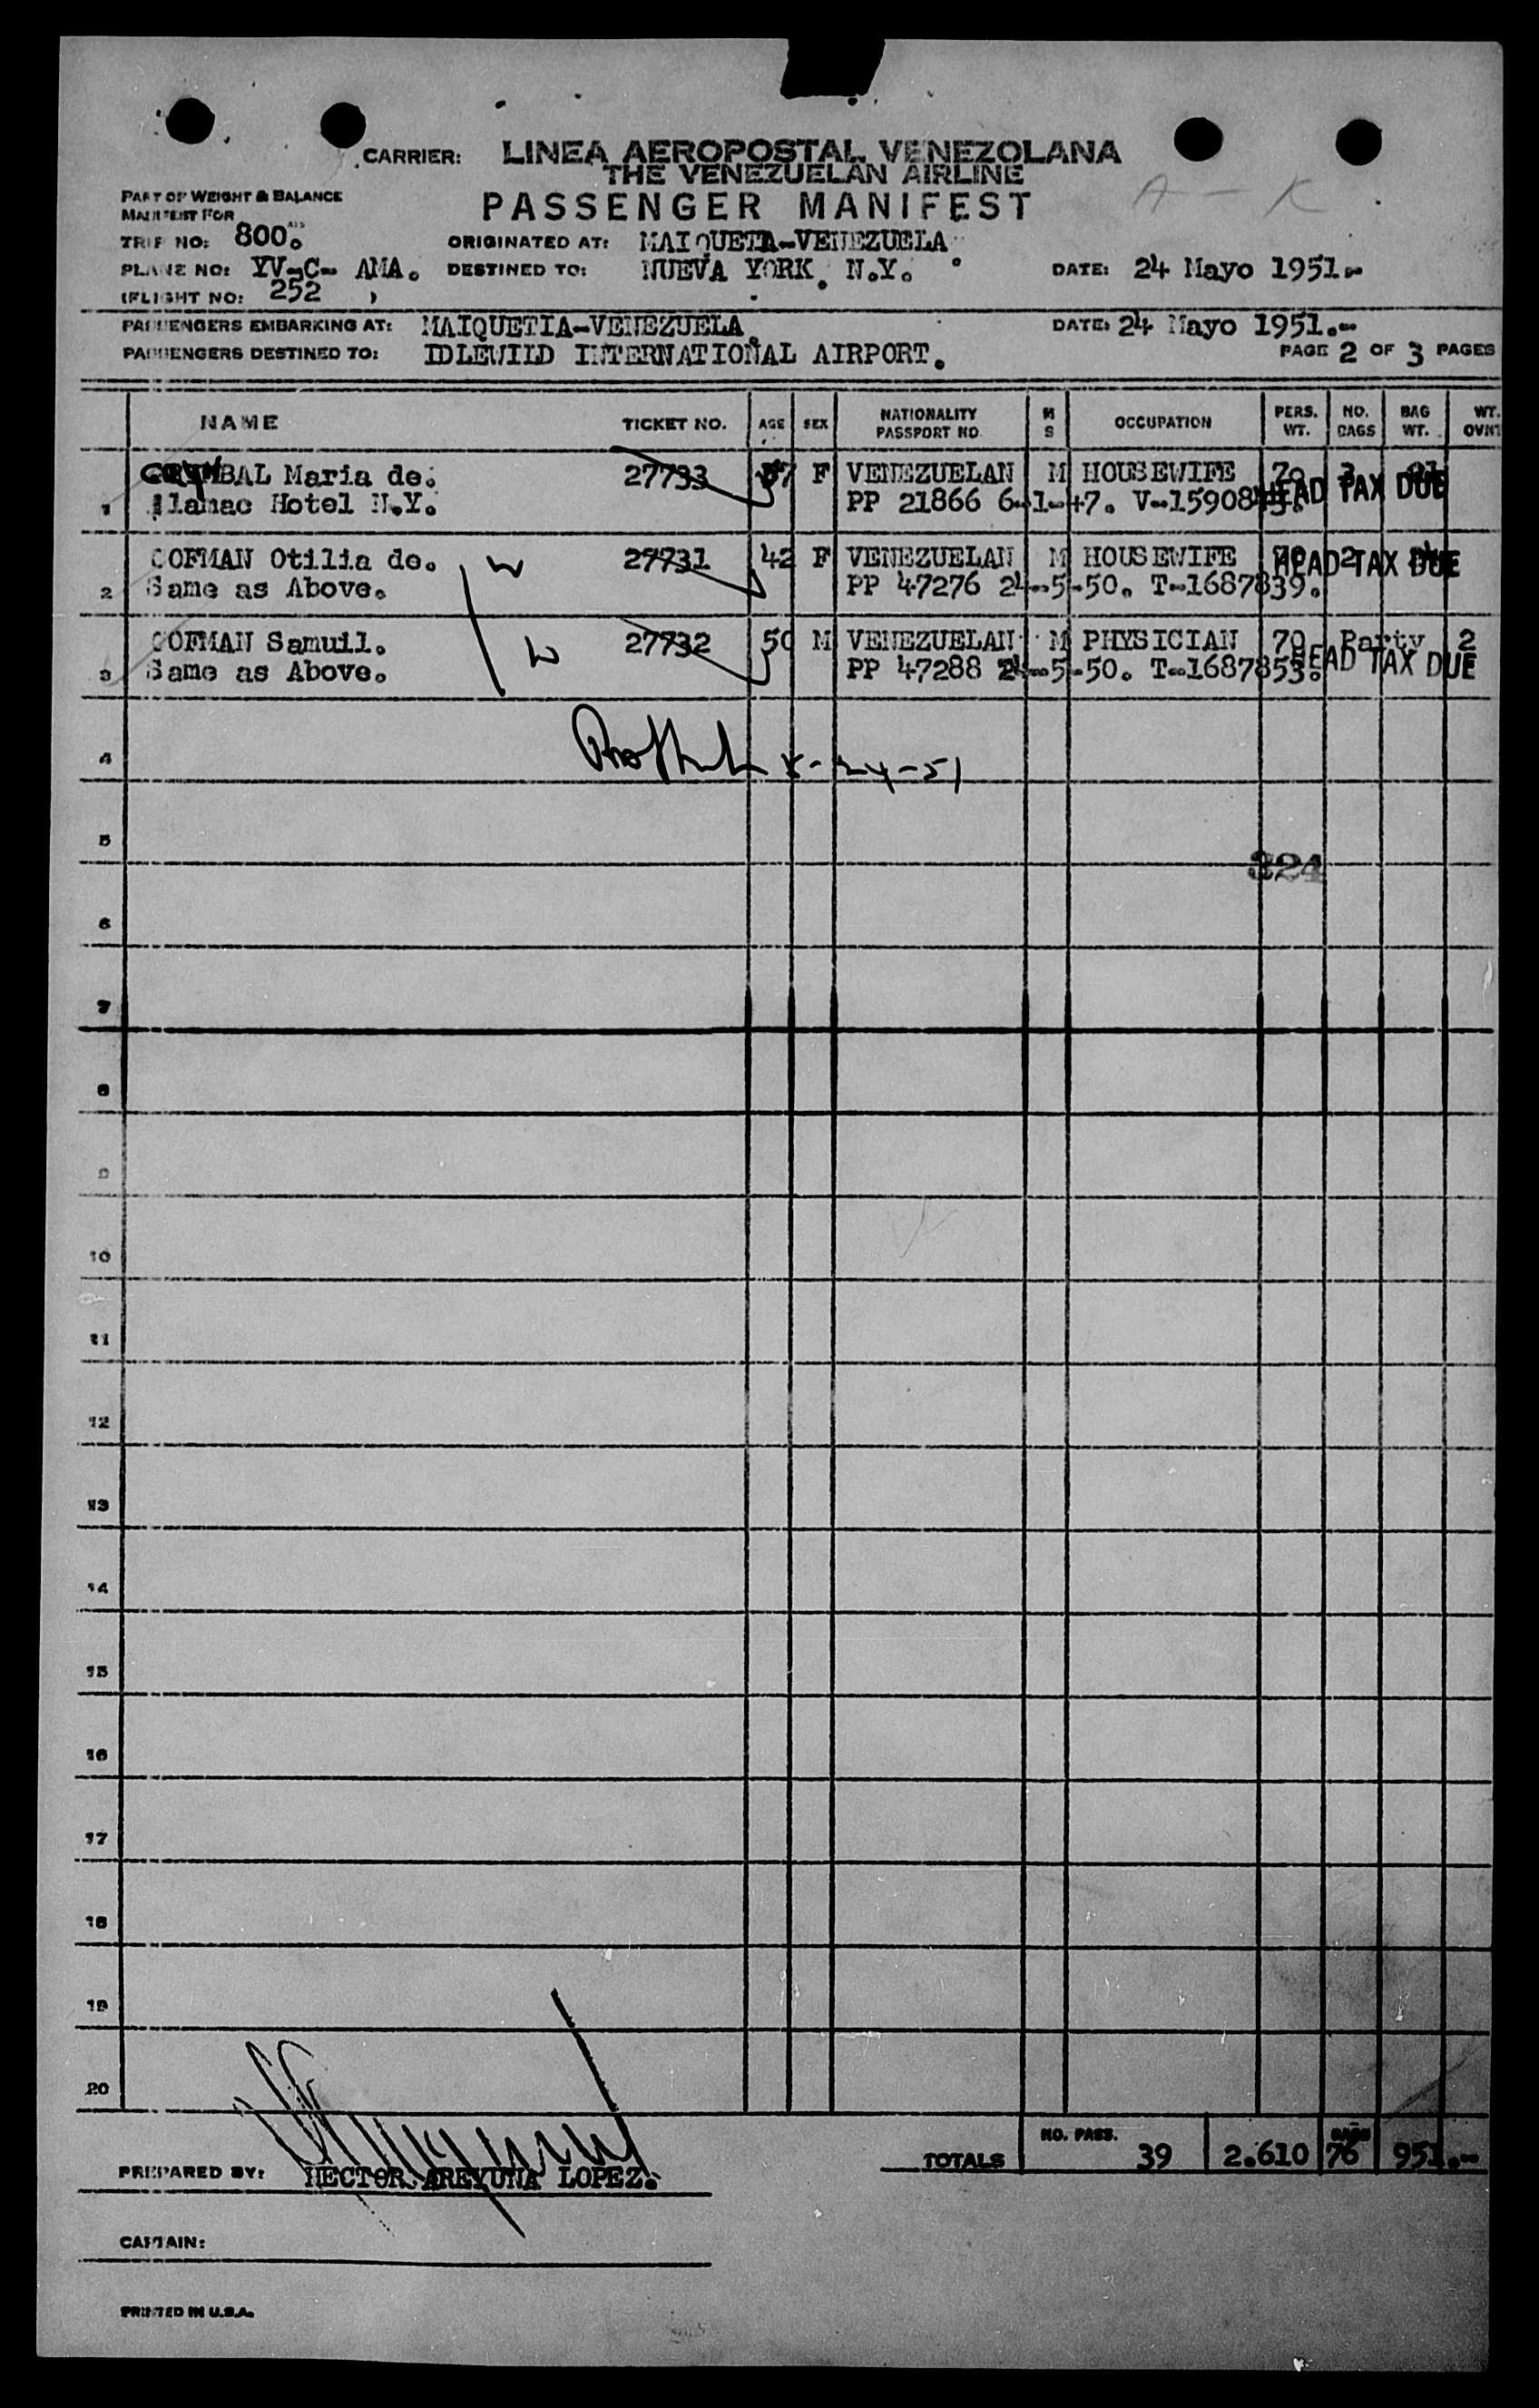 A - K
CARRIER: LINEA AEROPOSTAL VENEZOLANA
THE VENEZUELAN AIRLINE
PASSENGER MANIFEST
PART OF WEIGHT & BALANCE
MANIFEST FOR
TRIP NO: 800.
ORIGINATED AT: MAIQUETIA-VENEZUELA
PLANE NO: YV-C- AMA. DESTINED TO: NUEVA YORK. N.Y. DATE: 24 Mayo 1951.-
(FLIGHT NO: 252 )
PASSENGERS EMBARKING AT: MAIQUETIA-VENEZUELA. DATE: 24 Mayo 1951.--
PASSENGERS DESTINED TO: IDLEWILD INTERNATIONAL AIRPORT. PAGE 2 OF 3 PAGES
NAME TICKET NO. AGE SEX NATIONALITY PASSPORT NO M S OCCUPATION PERS. WT. NO. BAGS BAG WT. WT. OVN
Maria de. 27733 F VENEZUELAN M HOUSEWIFE 70
1 Alamac Hotel N.Y. PP 21866 6-1-47. HEAD TAX DUE
COFMAN Otilia de. W 27731 42 F VENEZUELAN M HOUSEWIFE 70 2 HEAD TAX DUE
2 Same as Above. PP 47276 24-5-50. T-1687839.
COFMAN Samuil. W 27732 50 M VENEZUELAN M PHYSICIAN 70 Party 2
3 Same as Above. PP 47288 24-5-50. T-1687853. HEAD TAX DUE
4 5-24-51
5
324
6
7
8
9
10
11
12
13
14
15
16
17
18
19
20
TOTALS NO. PASS. 39 2.610 BAGS 76 951.--
PREPARED BY: HECTOR AREYUNA LOPEZ.
CAPTAIN:
PRINTED IN U.S.A.